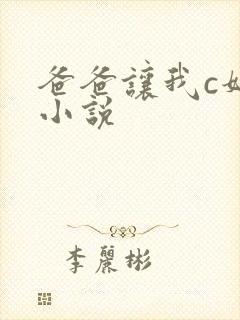 爸爸讓我c
小說
李麗彬